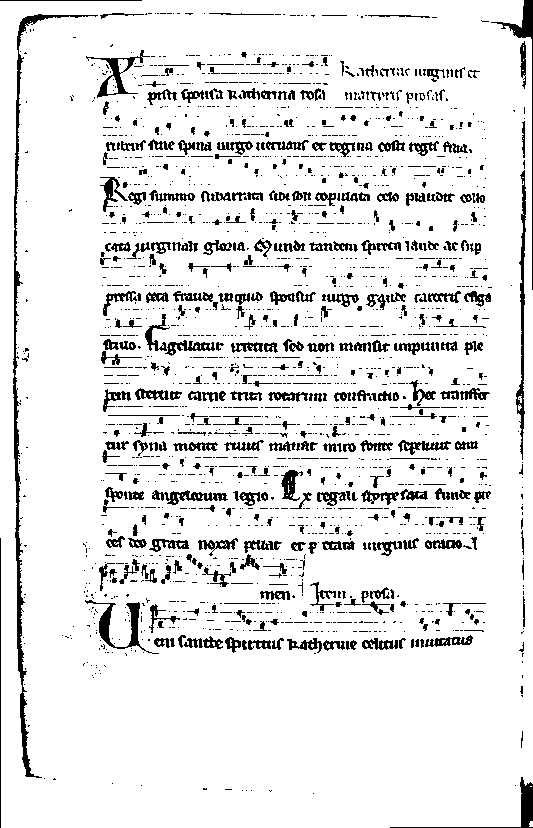 Katherine uirginis et
Xpisti sponsa katherina rosa martyris prosas.
rubens sine spina uirgo uernans et regina celi regis filia.
Regi summo subarrata sibi soli copulata celo plaudit collo
cata uirginali gloria. Mundi tandem spreta laude ac sup
pressa ceca fraude inquid sponsus uirgo gaude carceris
stiuo. Flagellatur irretita sed non mansit impunita ple
bem sternit carne trita rotarum confractio. Hec transfer
tur syna monte riuus manat miro fonte sepeliuit
sponte angelorum legio. Ex regali styrpe sata funde pre
ces deo grata noxas pellat et p etata uirginis oratio. A
men. Item prosa.
Ueni sancte spiritus katherine celitus inuitatus